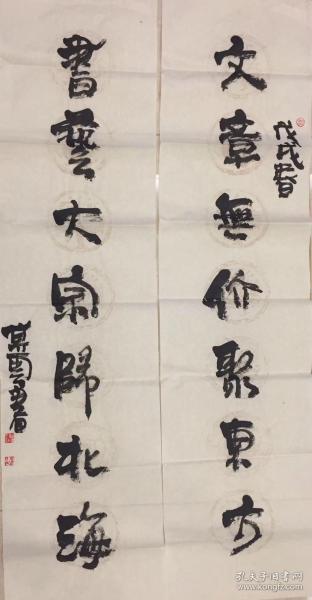 戊戌春
文章無价聚東方
書藝大宗歸北海
書
孔夫子旧书网